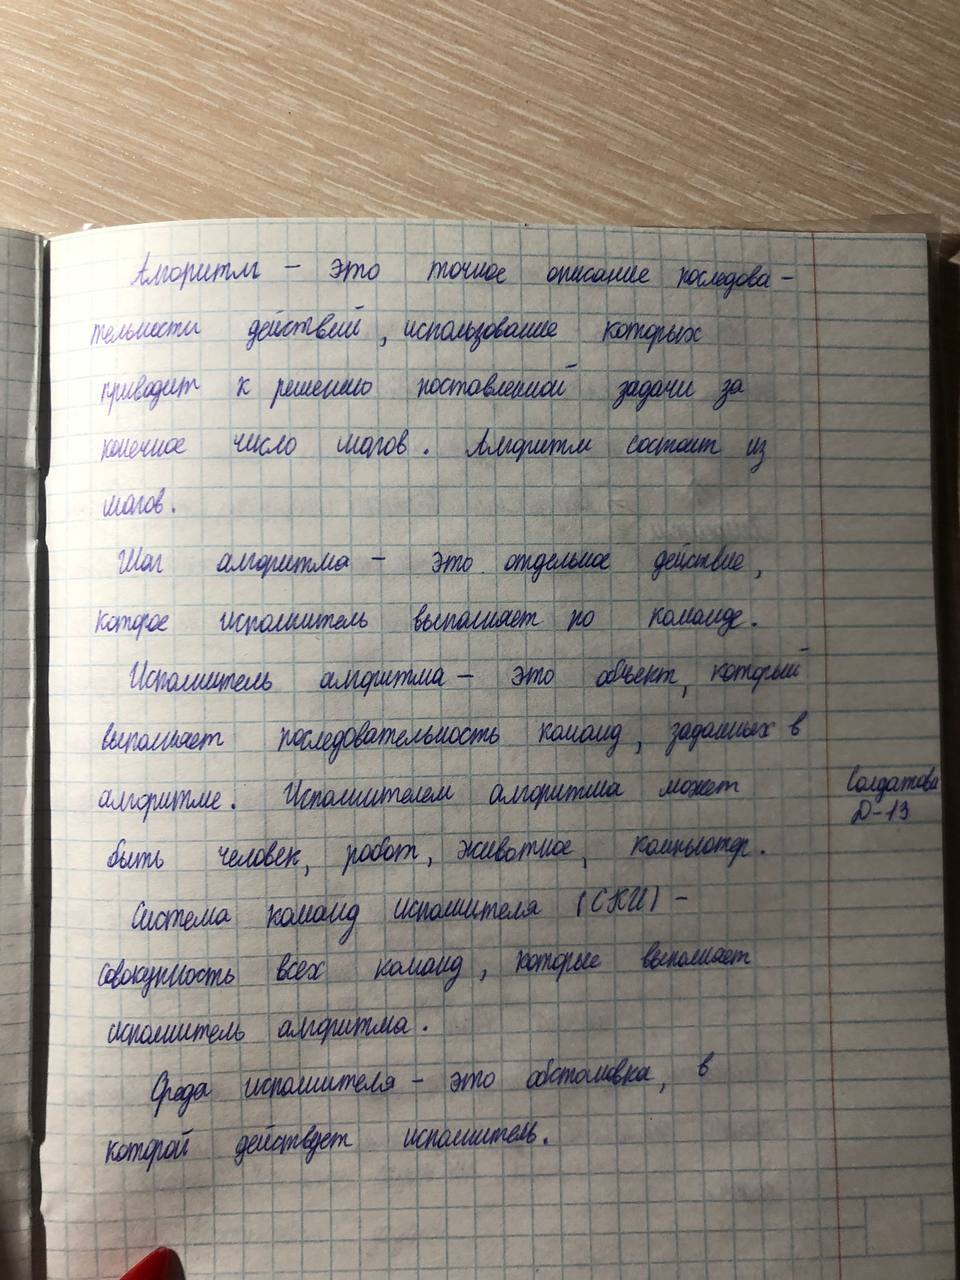 Алгоритм – это точное описание последова-
тельности действий, использование которых
приводит к решению поставленной задачи за
конечное число шагов. Алгоритм состоит из
шагов.
Шаг алгоритма – это отдельное действие,
которое исполнитель выполняет по команде.
Исполнитель алгоритма – это объект, который
выполняет последовательность команд, заданных в
алгоритме. Исполнителем алгоритма может
быть человек, робот, животное, компьютер.
Система команд исполнителя (СКИ) –
совокупность всех команд, которые выполняет
исполнитель алгоритма.
Среда исполнителя – это обстановка, в
которой действует исполнитель.
Солдатова
Д-13